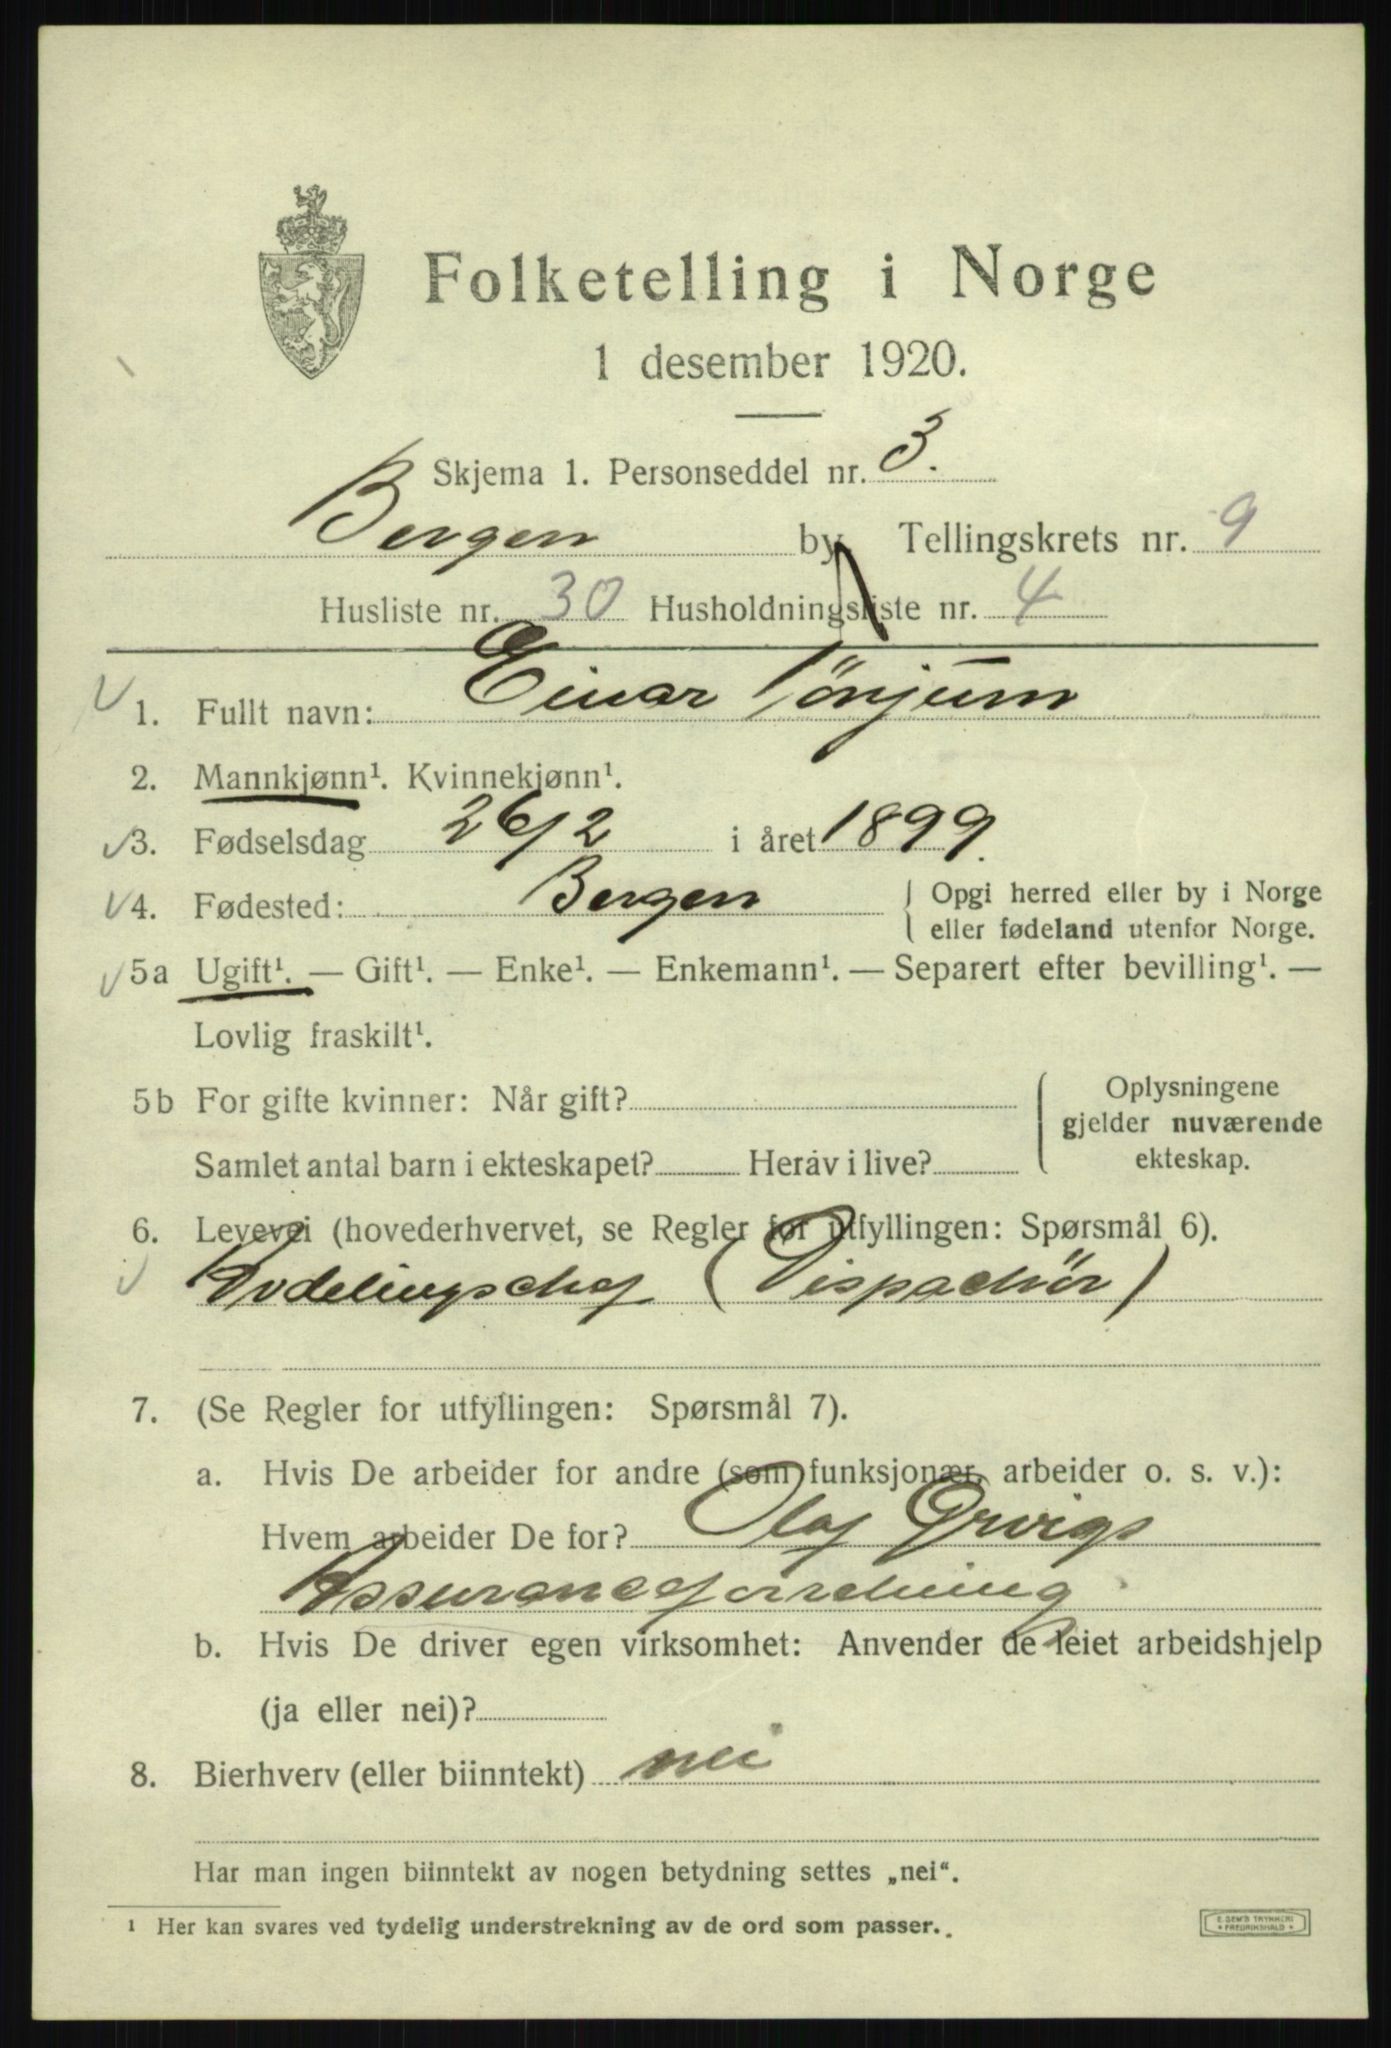 Folketelling i Norge
1 desember 1920.
Skjema 1. Personseddel nr. 3.
Bergen by Tellingskrets nr. 9
Husliste nr. 30 Husholdningsliste nr. 4
1. Fullt navn: Einar Tönjum
2. Mannkjønn¹. Kvinnekjønn¹.
3. Fødselsdag 26/2 i året 1899.
4. Fødested: Bergen { Opgi herred eller by i Norge
eller fødeland utenfor Norge.
5a Ugift¹. — Gift¹. — Enke¹. — Enkemann¹. — Separert efter bevilling¹. —
Lovlig fraskilt¹.
5b For gifte kvinner: Når gift?
Samlet antal barn i ekteskapet? Herav i live?
{ Oplysningene
gjelder nuværende
ekteskap.
6. Levevei (hovederhvervet, se Regler for utfyllingen: Spørsmål 6).
Avdelingschef (Dispachör)
7. (Se Regler for utfyllingen: Spørsmål 7).
a. Hvis De arbeider for andre (som funksjonær, arbeider o. s. v.):
Hvem arbeider De for? Olaf Ørvigs
Assuranceforretning
b. Hvis De driver egen virksomhet: Anvender de leiet arbeidshjelp
(ja eller nei)?
8. Bierhverv (eller biinntekt) nei
Har man ingen biinntekt av nogen betydning settes „nei“.
¹ Her kan svares ved tydelig understrekning av de ord som passer.
E. SEM'S TRYKKERI
• FREDRIKSHALD •